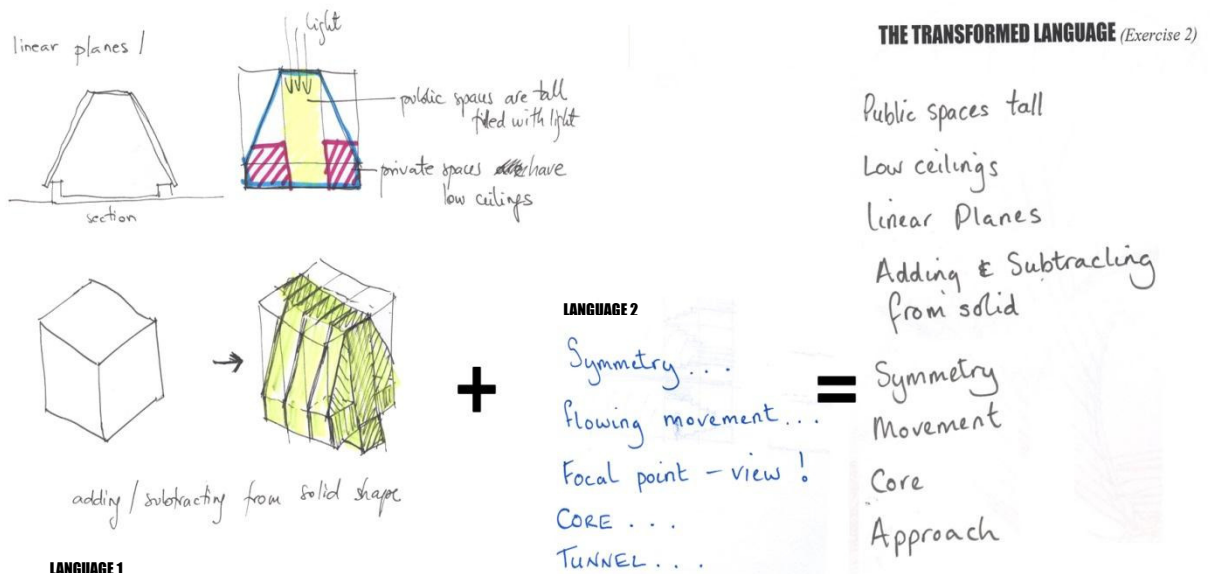 linear planes /
light
public spaces are tall
filled with light
private spaces have
low ceilings
section
adding / subtracting from solid shape
LANGUAGE 1
+
LANGUAGE 2
Symmetry...
flowing movement...
Focal point - view!
CORE...
TUNNEL...
=
THE TRANSFORMED LANGUAGE (Exercise 2)
Public spaces tall
Low ceilings
linear Planes
Adding & Subtracting
from solid
Symmetry
Movement
Core
Approach